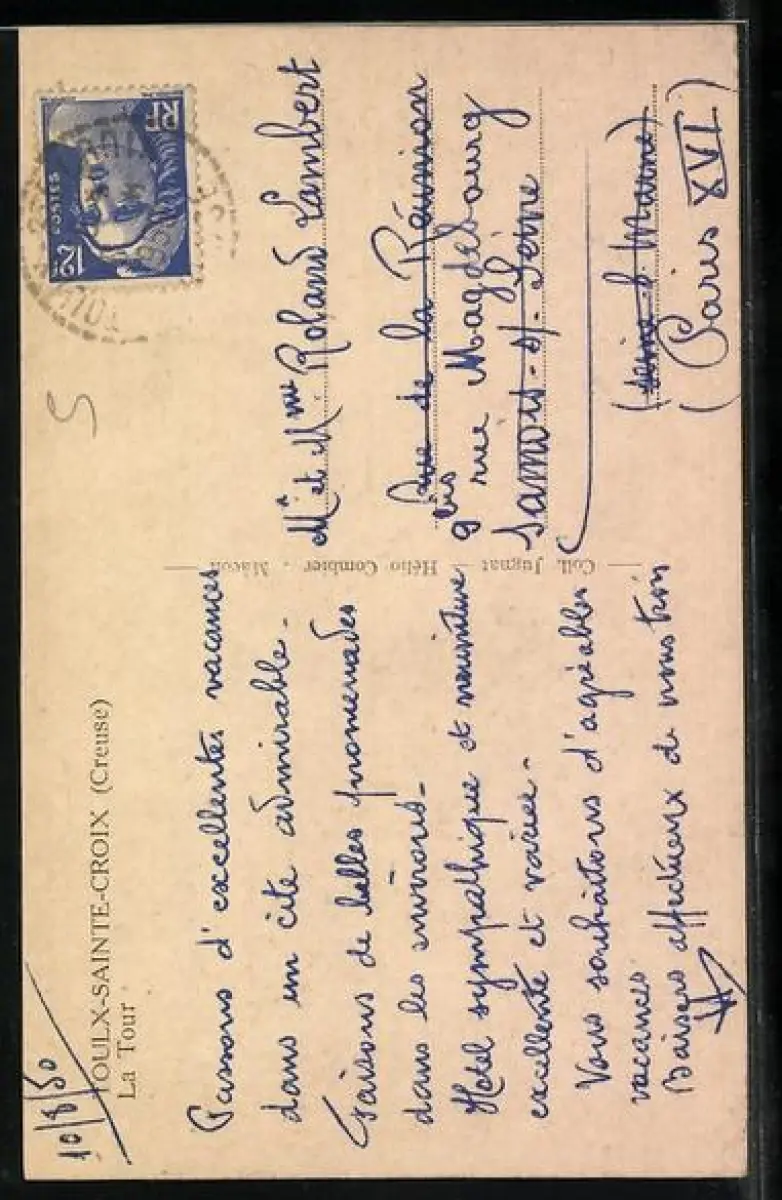 10/8/50
TOULX-SAINTE-CROIX (Creuse)
La Tour
Passons d'excellentes vacances
dans un cite admirable.
Faisons de belles promenades
dans les environs.
Hotel sympathique et nourriture
excellente et variée.
Vous souhaitons d'agréables
vacances
Baisers affectueux de nous trois
Coll. Jugnat - Hélio Combier - Mâcon
POSTES
RF
12F
TOULX
Mr et Mme Roland Lambert
rue de la Réunion
9 bis rue Magdebourg
Samois-s/-Seine
(Seine & Marne)
(Paris XVI)